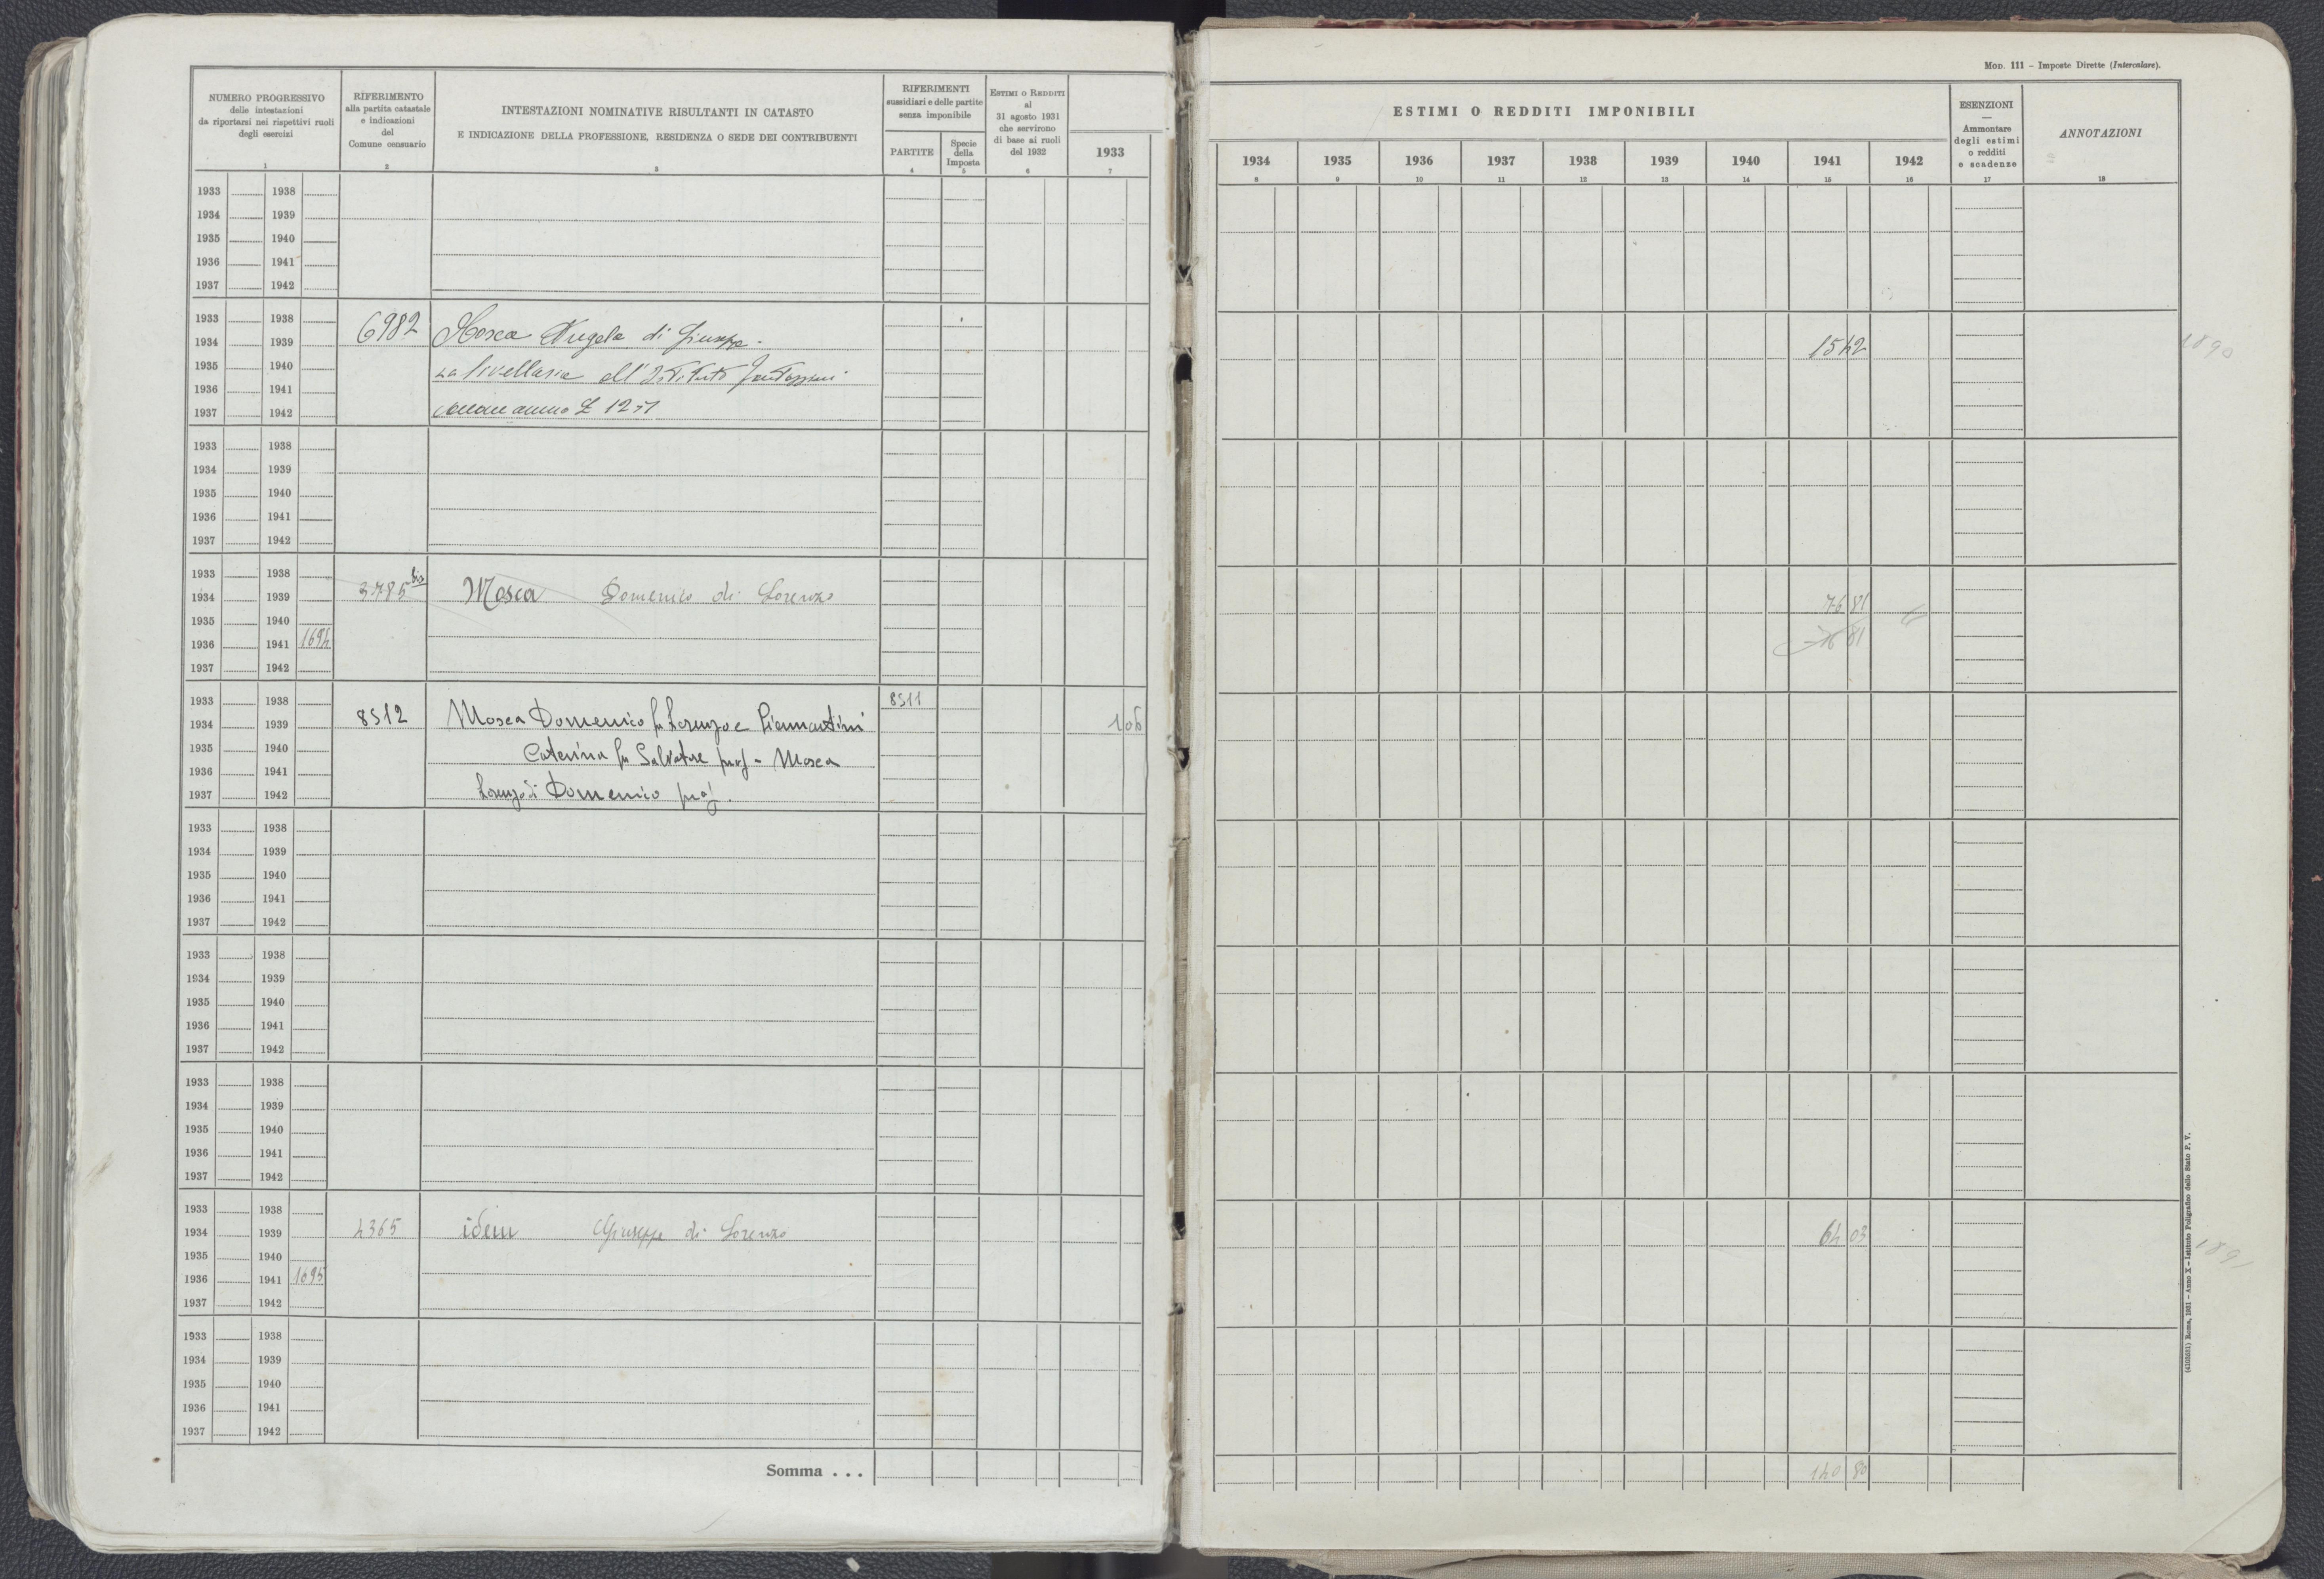 MOD. 111 – Imposte Dirette (Intercalare).
NUMERO PROGRESSIVO
delle intestazioni
da riportarsi nei rispettivi ruoli
degli esercizi
1
RIFERIMENTO
alla partita catastale
e indicazioni
del
Comune censuario
2
INTESTAZIONI NOMINATIVE RISULTANTI IN CATASTO
E INDICAZIONE DELLA PROFESSIONE, RESIDENZA O SEDE DEI CONTRIBUENTI
3
RIFERIMENTI
sussidiari e delle partite
senza imponibile
PARTITE
4
Specie
della
Imposta
5
ESTIMI O REDDITI
al
31 agosto 1931
che servirono
di base ai ruoli
del 1932
6
1933
7
ESTIMI O REDDITI IMPONIBILI
1934 1935 1936 1937 1938 1939 1940 1941 1942
8 9 10 11 12 13 14 15 16
ESENZIONI
—
Ammontare
degli estimi
o redditi
e scadenze
17
ANNOTAZIONI
18
1933 1938
1934 1939
1935 1940
1936 1941
1937 1942
1933 1938
6982 Mosca Angela di Giuseppe
1934 1939 15 42
1890
1935 1940 livellaria all'Istituto
1936 1941
1937 1942 annuo £ 12
1933 1938
1934 1939
1935 1940
1936 1941
1937 1942
1933 1938
3785 bis Mosca Domenico di Lorenzo
1934 1939 76 81
1935 1940
1936 1941 1694 76 81
1937 1942
1933 1938 8511
1934 1939 8512 Mosca Domenico fu Lorenzo e Piermartini 1 06
1935 1940 Caterina fu Salvatore prop - Mosca
1936 1941
1937 1942 Lorenzo di Domenico prop.
1933 1938
1934 1939
1935 1940
1936 1941
1937 1942
1933 1938
1934 1939
1935 1940
1936 1941
1937 1942
1933 1938
1934 1939
1935 1940
1936 1941
1937 1942
1933 1938
1934 1939 4365 idem Giuseppe di Lorenzo 64 03
1891
1935 1940
1936 1941 1695
1937 1942
1933 1938
1934 1939
1935 1940
1936 1941
1937 1942
Somma . . . 140 80
(4103531) Roma, 1931 – Anno X – Istituto Poligrafico dello Stato P. V.